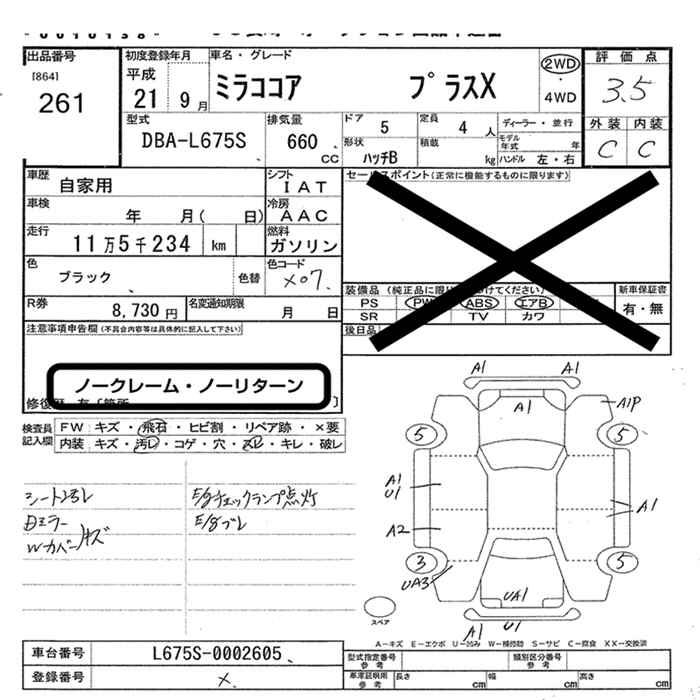 出品番号
[864]
261
初度登録年月
平成
21年 9月
車名・グレード
ミラココア プラスX
2WD
・
4WD
評価点
3.5
外装 内装
C C
型式
DBA-L675S
排気量
660 cc
ドア 5
定員 4 人
ディーラー・並行
形状 ハッチB
積載 kg
モデル年式 年
ハンドル 左・右
車歴 自家用
シフト IAT
車検 年 月( 日)
冷房 AAC
走行 11万5千234 km
燃料 ガソリン
色 ブラック 色替
色コード X07
R券 8,730円
名変通知期限 月 日
セールスポイント(正常に機能するものに限ります)
PS PW ABS エアB
SR TV カワ
新車保証書
有・無
後日品
注意事項申告欄(不具合内容等は具体的に記入して下さい)
ノークレーム・ノーリターン
検査員記入欄
FW キズ・飛石・ヒビ割・リペア跡・×要
内装 キズ・汚レ・コゲ・穴・スレ・キレ・破レ
シートスレ E/gチェックランプ点灯
E/gブレ
Wカバーキズ
A1 A1
A1 A1P
5 5
A1
U1 A1
A2
3 5
UA3 UA1
A1 U1
スペア
A-キズ E-エクボ U-凹み W-補修跡 S-サビ C-腐食 XX-交換済
車台番号 L675S-0002605
登録番号 ×
型式指定番号 参考
類別区分番号 参考
車庫証明用 参考
長さ cm 幅 cm 高さ cm